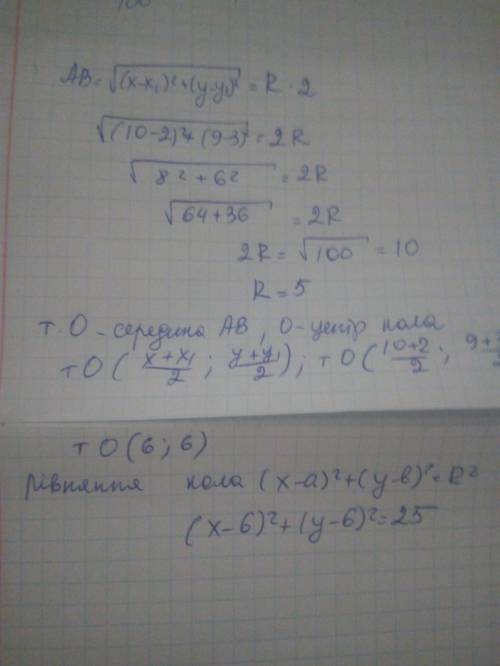 AB = √(x-x₁)²+(y-y₁)² = R · 2
√(10-2)²+(9-3)² = 2R
√8²+6² = 2R
√64+36 = 2R
2R = √100 = 10
R = 5
т. О - середина АВ, О - центр кола
т О ( x+x₁/2 ; y+y₁/2 ); т О ( 10+2/2 ; 9+3/2
т О (6 ; 6)
рівняння кола (x-a)²+(y-b)² = R²
(x-6)²+(y-6)² = 25